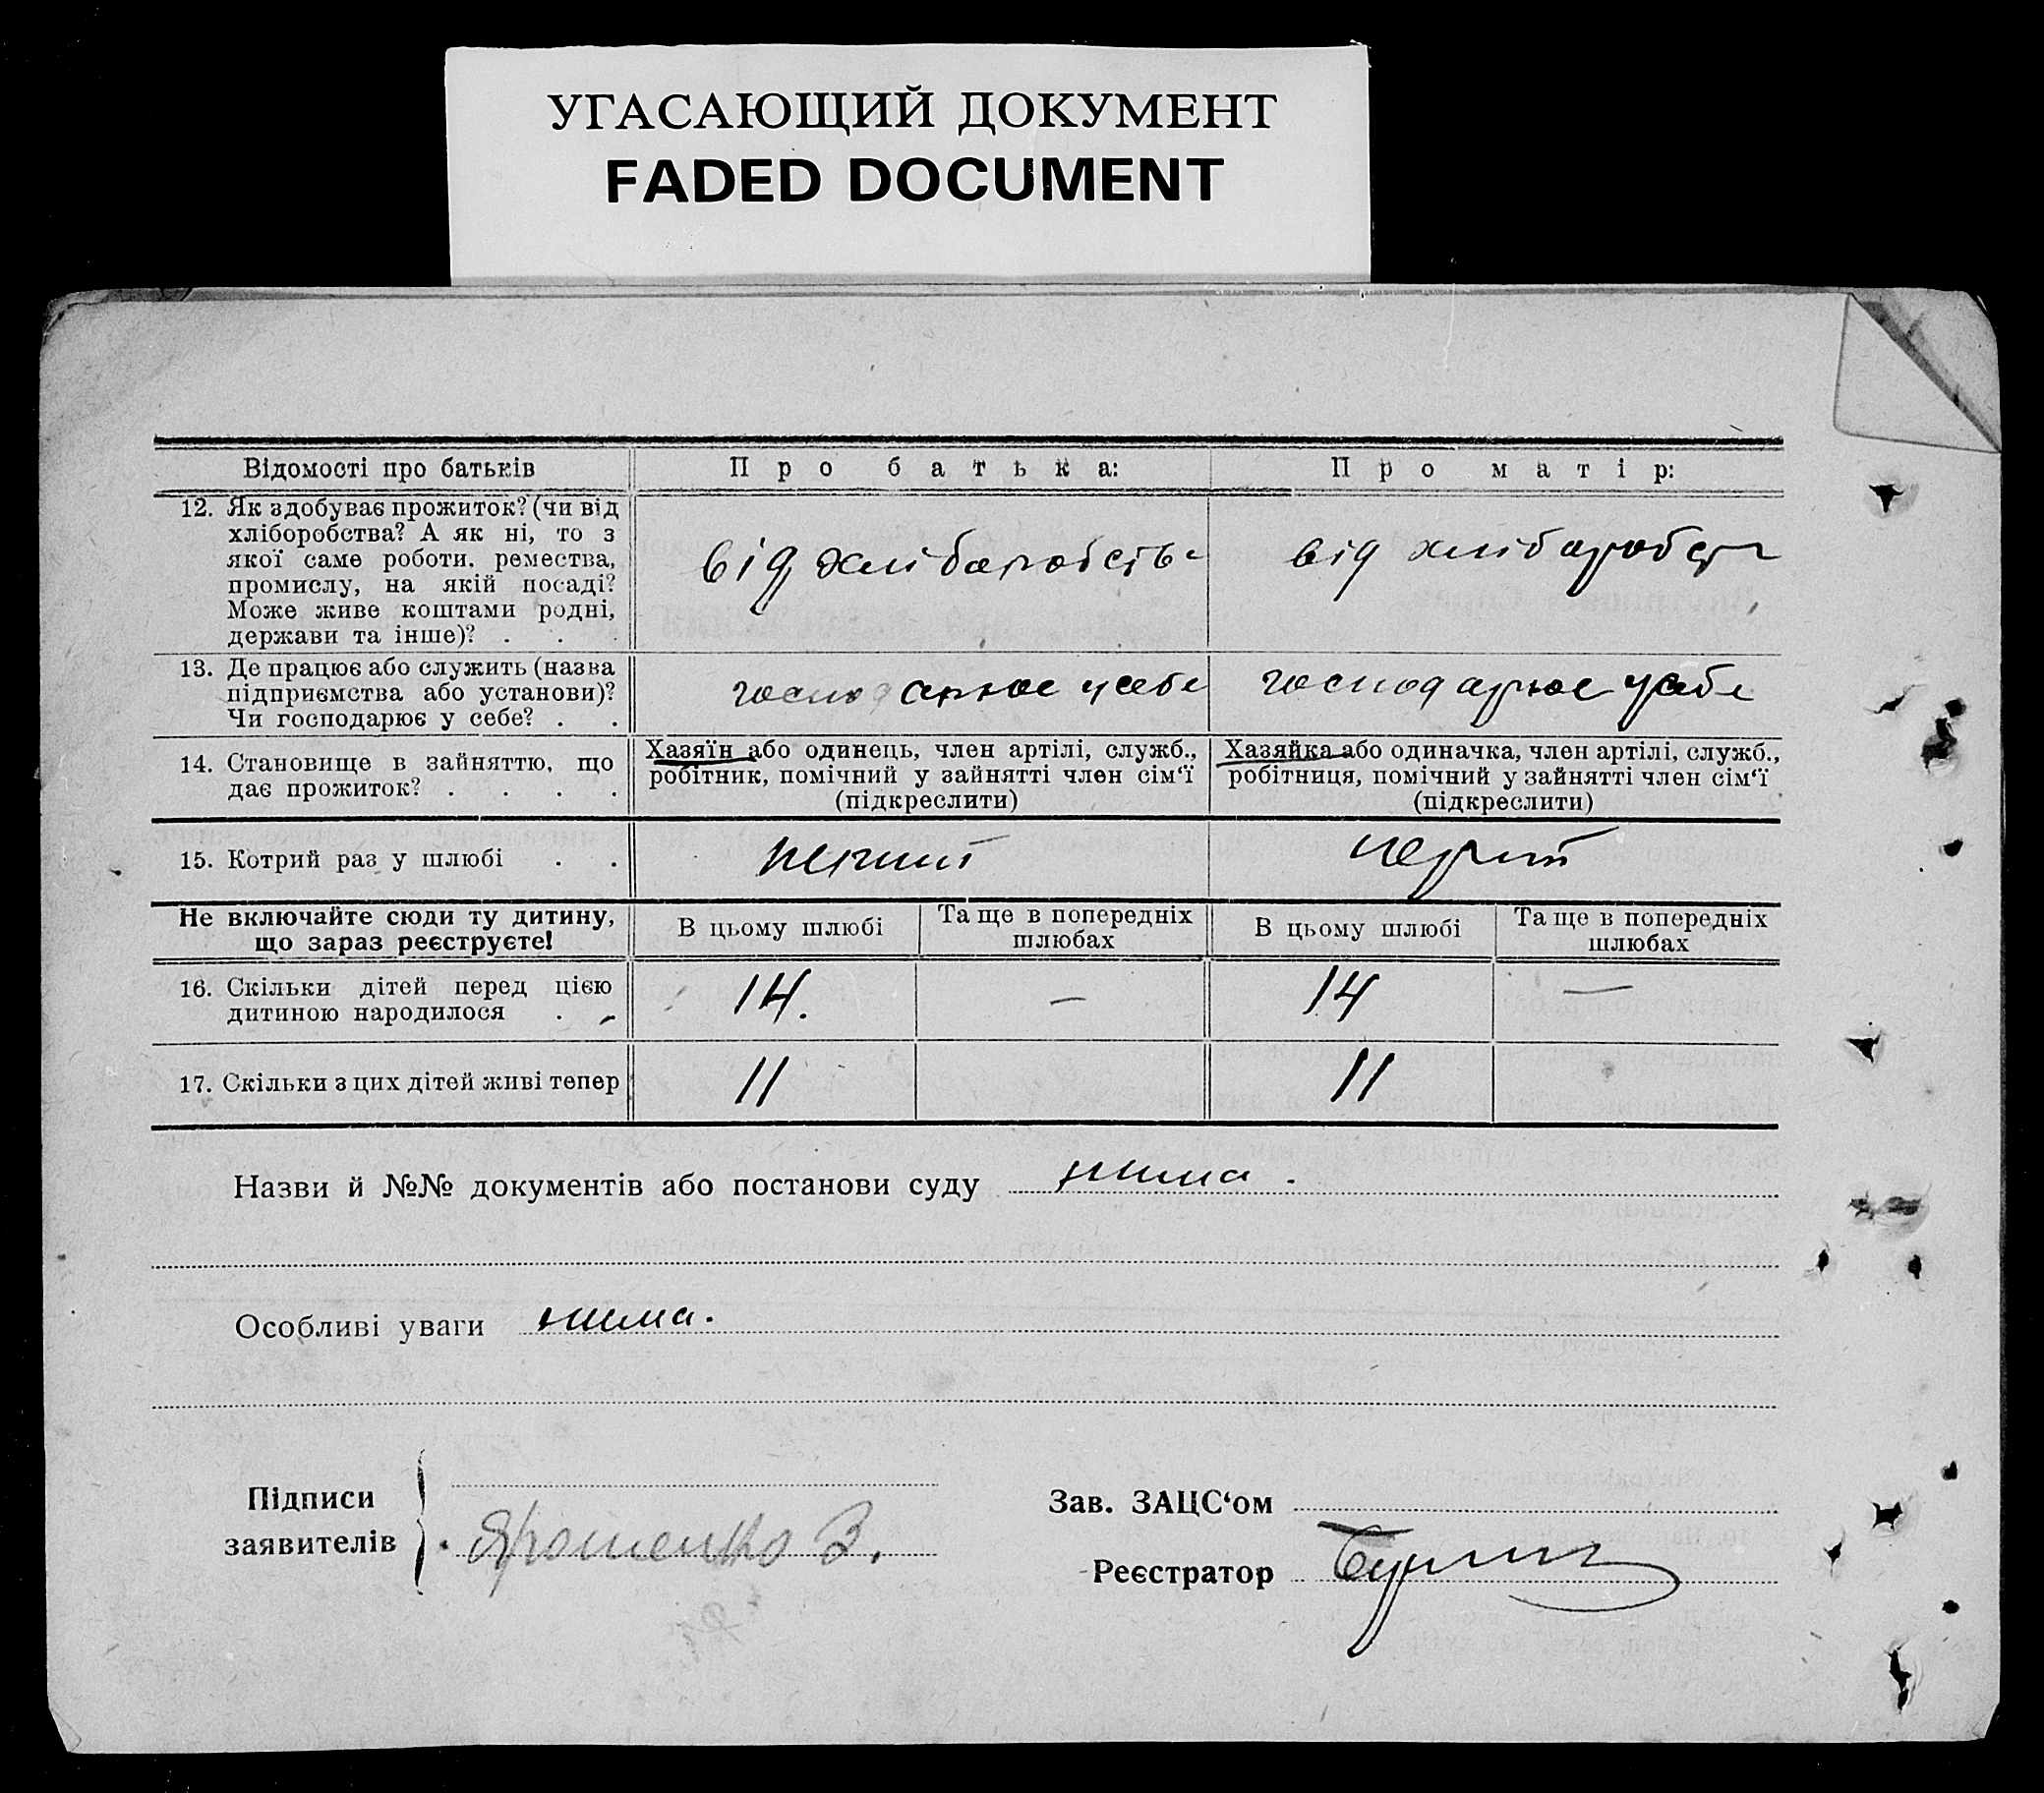 УГАСАЮЩИЙ ДОКУМЕНТ
FADED DOCUMENT
Відомості про батьків
Про батька:
Про матір:
12. Як здобуває прожиток? (чи від
хліборобства? А як ні, то з
якої саме роботи, ремества,
промислу, на якій посаді?
Може живе коштами родні,
держави та інше)? . . .
від хліборобств
від хліборобст
13. Де працює або служить (назва
підприємства або установи)?
Чи господарює у себе? . .
господарює у себе
господарює у себе
14. Становище в зайняттю, що
дає прожиток? . . . .
Хазяїн або одинець, член артілі, служб.,
робітник, помічний у зайнятті член сім‘ї
(підкреслити)
Хазяйка або одиначка, член артілі, служб.,
робітниця, помічний у зайнятті член сім‘ї
(підкреслити)
15. Котрий раз у шлюбі . .
перший
перший
Не включайте сюди ту дитину,
що зараз реєструєте!
В цьому шлюбі
Та ще в попередніх
шлюбах
В цьому шлюбі
Та ще в попередніх
шлюбах
16. Скільки дітей перед цією
дитиною народилося . .
14.
—
14
—
17. Скільки з цих дітей живі тепер
11
11
Назви й №№ документів або постанови суду нима.
Особливі уваги нима.
Підписи
заявителів
Ярошенко З.
Зав. ЗАЦС‘ом
Реєстратор